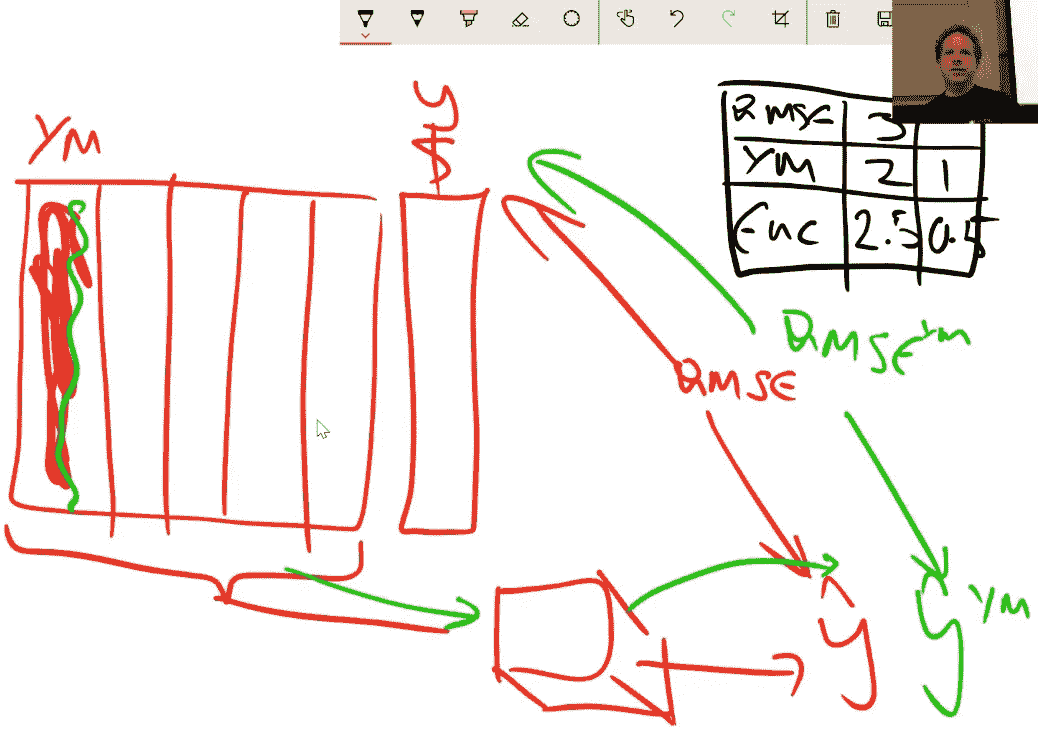 YM
y
$
RMSE 3
YM 2 1
Enc 2.5 0.5
RMSE^YM
RMSE
ŷ
ŷ^YM